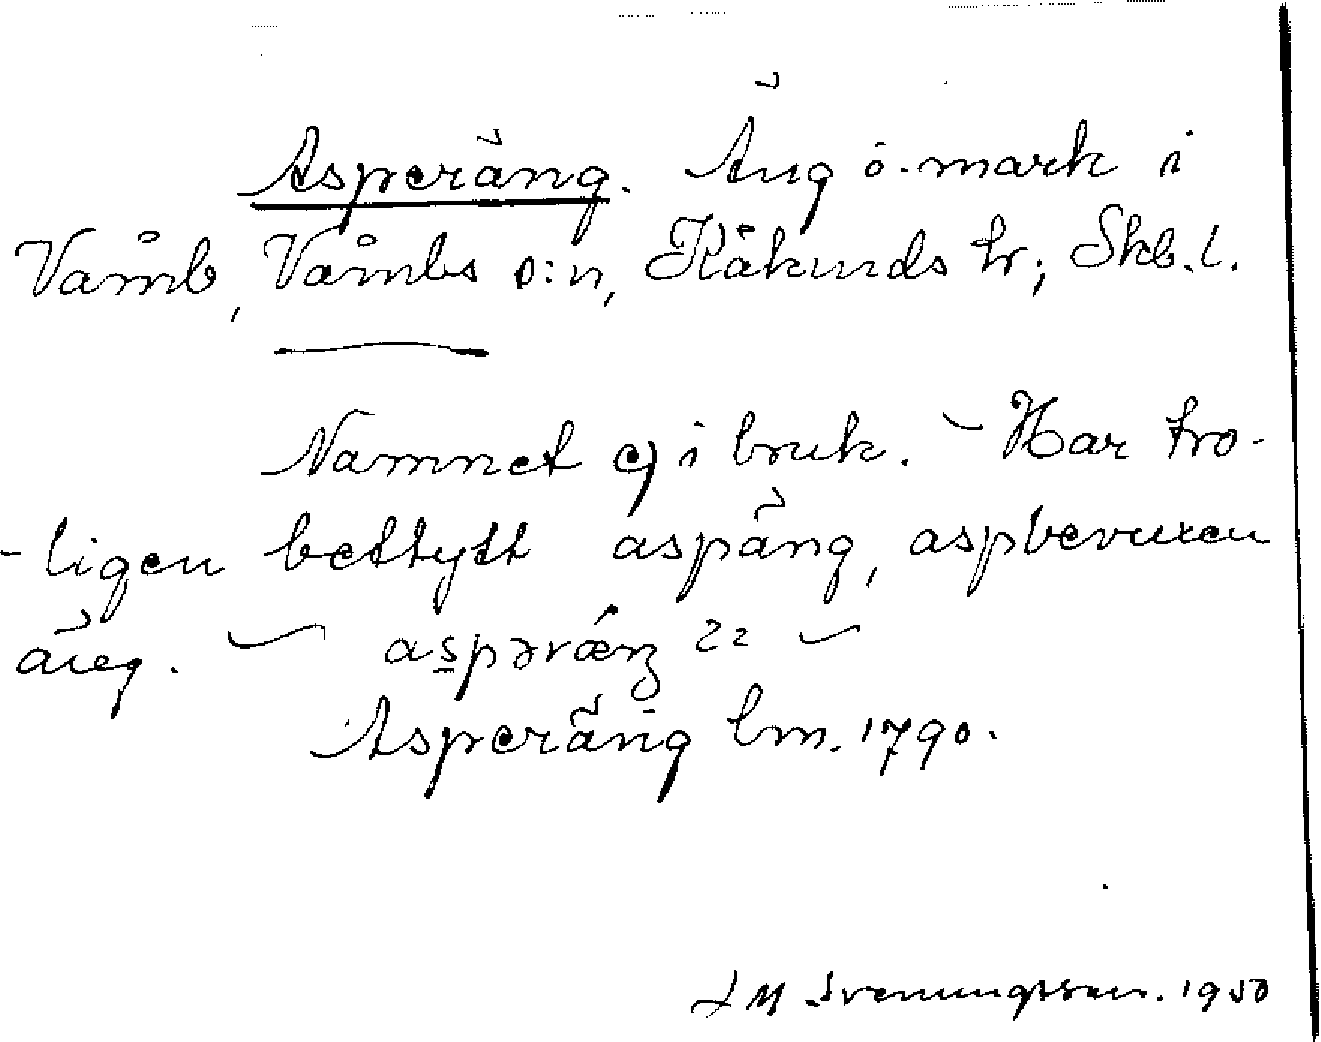 Asperäng. Äng o. mark i
Våmb, Våmbs s:n, Kåkinds hr; Skb.l.
Namnet ej i bruk. – Har tro-
-ligen bettytt aspäng, aspbevuxen
äng. – aspərǽŋ 22 –
Asperäng lm. 1790.
J M Svenungsson. 1950